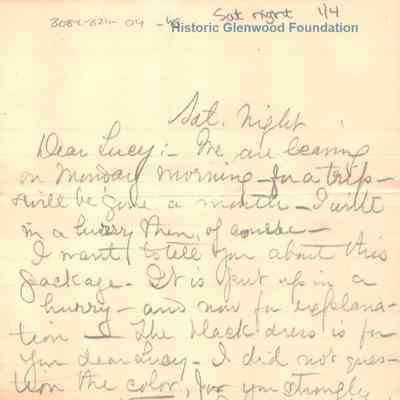 Sat night 1/4
Historic Glenwood Foundation
Sat. Night
Dear Lucy:- We are leaving
on Monday morning - for a trip -
will be gone a month - I write
in a hurry then, of course -
I want to tell you about this
package - It is put up in a
hurry - and now for explana-
tion - The black dress is for
you dear Lucy - I did not ques-
tion the color, for you strongly